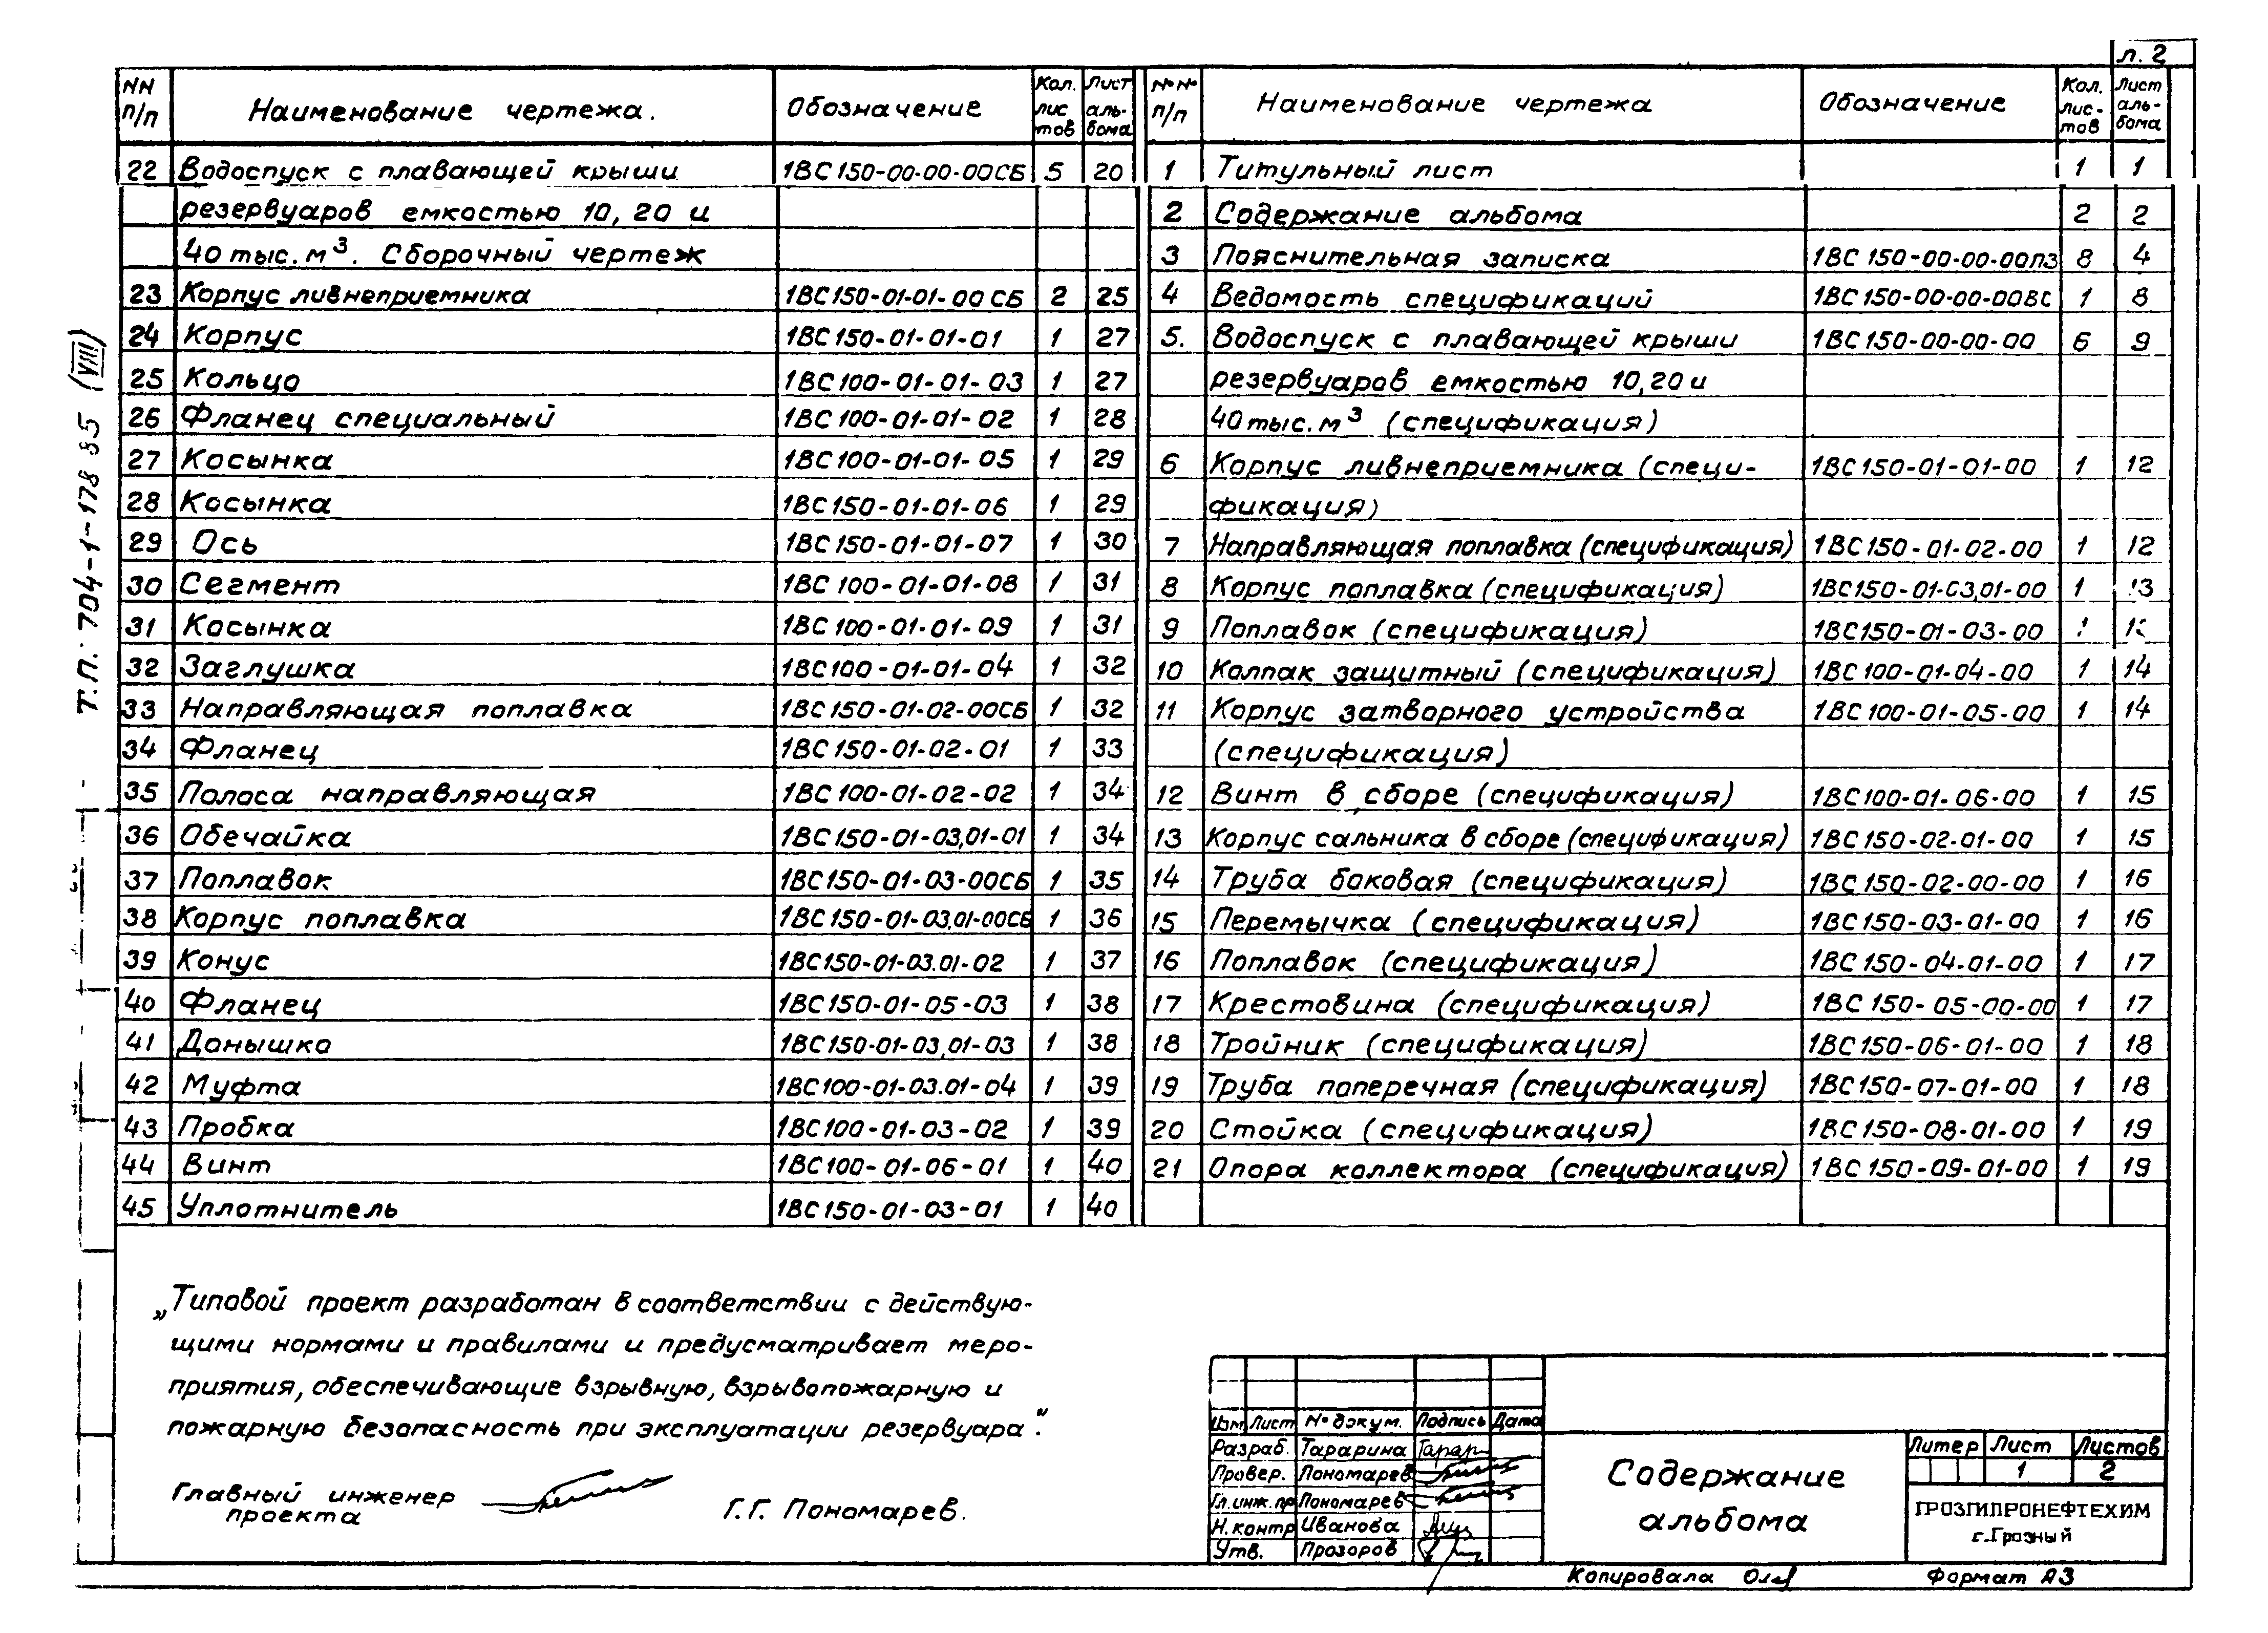 л. 2
NN п/п Наименование чертежа. Обозначение Кол. лис тов Лист аль- бома
22 Водоспуск с плавающей крыши 1ВС150-00-00-00СБ 5 20
резервуаров емкостью 10, 20 и
40 тыс. м³. Сборочный чертеж
23 Корпус ливнеприемника 1ВС150-01-01-00 СБ 2 25
24 Корпус 1ВС150-01-01-01 1 27
25 Кольцо 1ВС100-01-01-03 1 27
26 Фланец специальный 1ВС100-01-01-02 1 28
27 Косынка 1ВС100-01-01-05 1 29
28 Косынка 1ВС150-01-01-06 1 29
29 Ось 1ВС150-01-01-07 1 30
30 Сегмент 1ВС100-01-01-08 1 31
31 Косынка 1ВС100-01-01-09 1 31
32 Заглушка 1ВС100-01-01-04 1 32
33 Направляющая поплавка 1ВС150-01-02-00СБ 1 32
34 Фланец 1ВС150-01-02-01 1 33
35 Полоса направляющая 1ВС100-01-02-02 1 34
36 Обечайка 1ВС150-01-03,01-01 1 34
37 Поплавок 1ВС150-01-03-00СБ 1 35
38 Корпус поплавка 1ВС150-01-03,01-00СБ 1 36
39 Конус 1ВС150-01-03.01-02 1 37
40 Фланец 1ВС150-01-05-03 1 38
41 Донышко 1ВС150-01-03,01-03 1 38
42 Муфта 1ВС100-01-03.01-04 1 39
43 Пробка 1ВС100-01-03-02 1 39
44 Винт 1ВС100-01-06-01 1 40
45 Уплотнитель 1ВС150-01-03-01 1 40
№№ п/п Наименование чертежа Обозначение Кол. лис- тов Лист аль- бома
1 Титульный лист 1 1
2 Содержание альбома 2 2
3 Пояснительная записка 1ВС150-00-00-00ПЗ 8 4
4 Ведомость спецификаций 1ВС150-00-00-00ВС 1 8
5. Водоспуск с плавающей крыши 1ВС150-00-00-00 6 9
резервуаров емкостью 10,20 и
40 тыс. м³ (спецификация)
6 Корпус ливнеприемника (специ- 1ВС150-01-01-00 1 12
фикация)
7 Направляющая поплавка (спецификация) 1ВС150-01-02-00 1 12
8 Корпус поплавка (спецификация) 1ВС150-01-03,01-00 1 13
9 Поплавок (спецификация) 1ВС150-01-03-00
10 Колпак защитный (спецификация) 1ВС100-01-04-00 1 14
11 Корпус затворного устройства 1ВС100-01-05-00 1 14
(спецификация)
12 Винт в сборе (спецификация) 1ВС100-01-06-00 1 15
13 Корпус сальника в сборе (спецификация) 1ВС150-02-01-00 1 15
14 Труба боковая (спецификация) 1ВС150-02-00-00 1 16
15 Перемычка (спецификация) 1ВС150-03-01-00 1 16
16 Поплавок (спецификация) 1ВС150-04-01-00 1 17
17 Крестовина (спецификация) 1ВС150-05-00-00 1 17
18 Тройник (спецификация) 1ВС150-06-01-00 1 18
19 Труба поперечная (спецификация) 1ВС150-07-01-00 1 18
20 Стойка (спецификация) 1ВС150-08-01-00 1 19
21 Опора коллектора (спецификация) 1ВС150-09-01-00 1 19
Т.П.: 704-1-178 85 (VIII)
„Типовой проект разработан в соответствии с действую-
щими нормами и правилами и предусматривает меро-
приятия, обеспечивающие взрывную, взрывопожарную и
пожарную безопасность при эксплуатации резервуара".
Главный инженер
проекта
Г.Г. Пономарев.
Изм Лист № докум. Подпись Дата
Разраб. Тарарина
Провер. Пономарев
Гл.инж.пр Пономарев
Н.контр Иванова
Утв. Прозоров
Содержание
альбома
Литер Лист Листов
1 2
ГРОЗГИПРОНЕФТЕХИМ
г.Грозный
Копировала
Формат А3